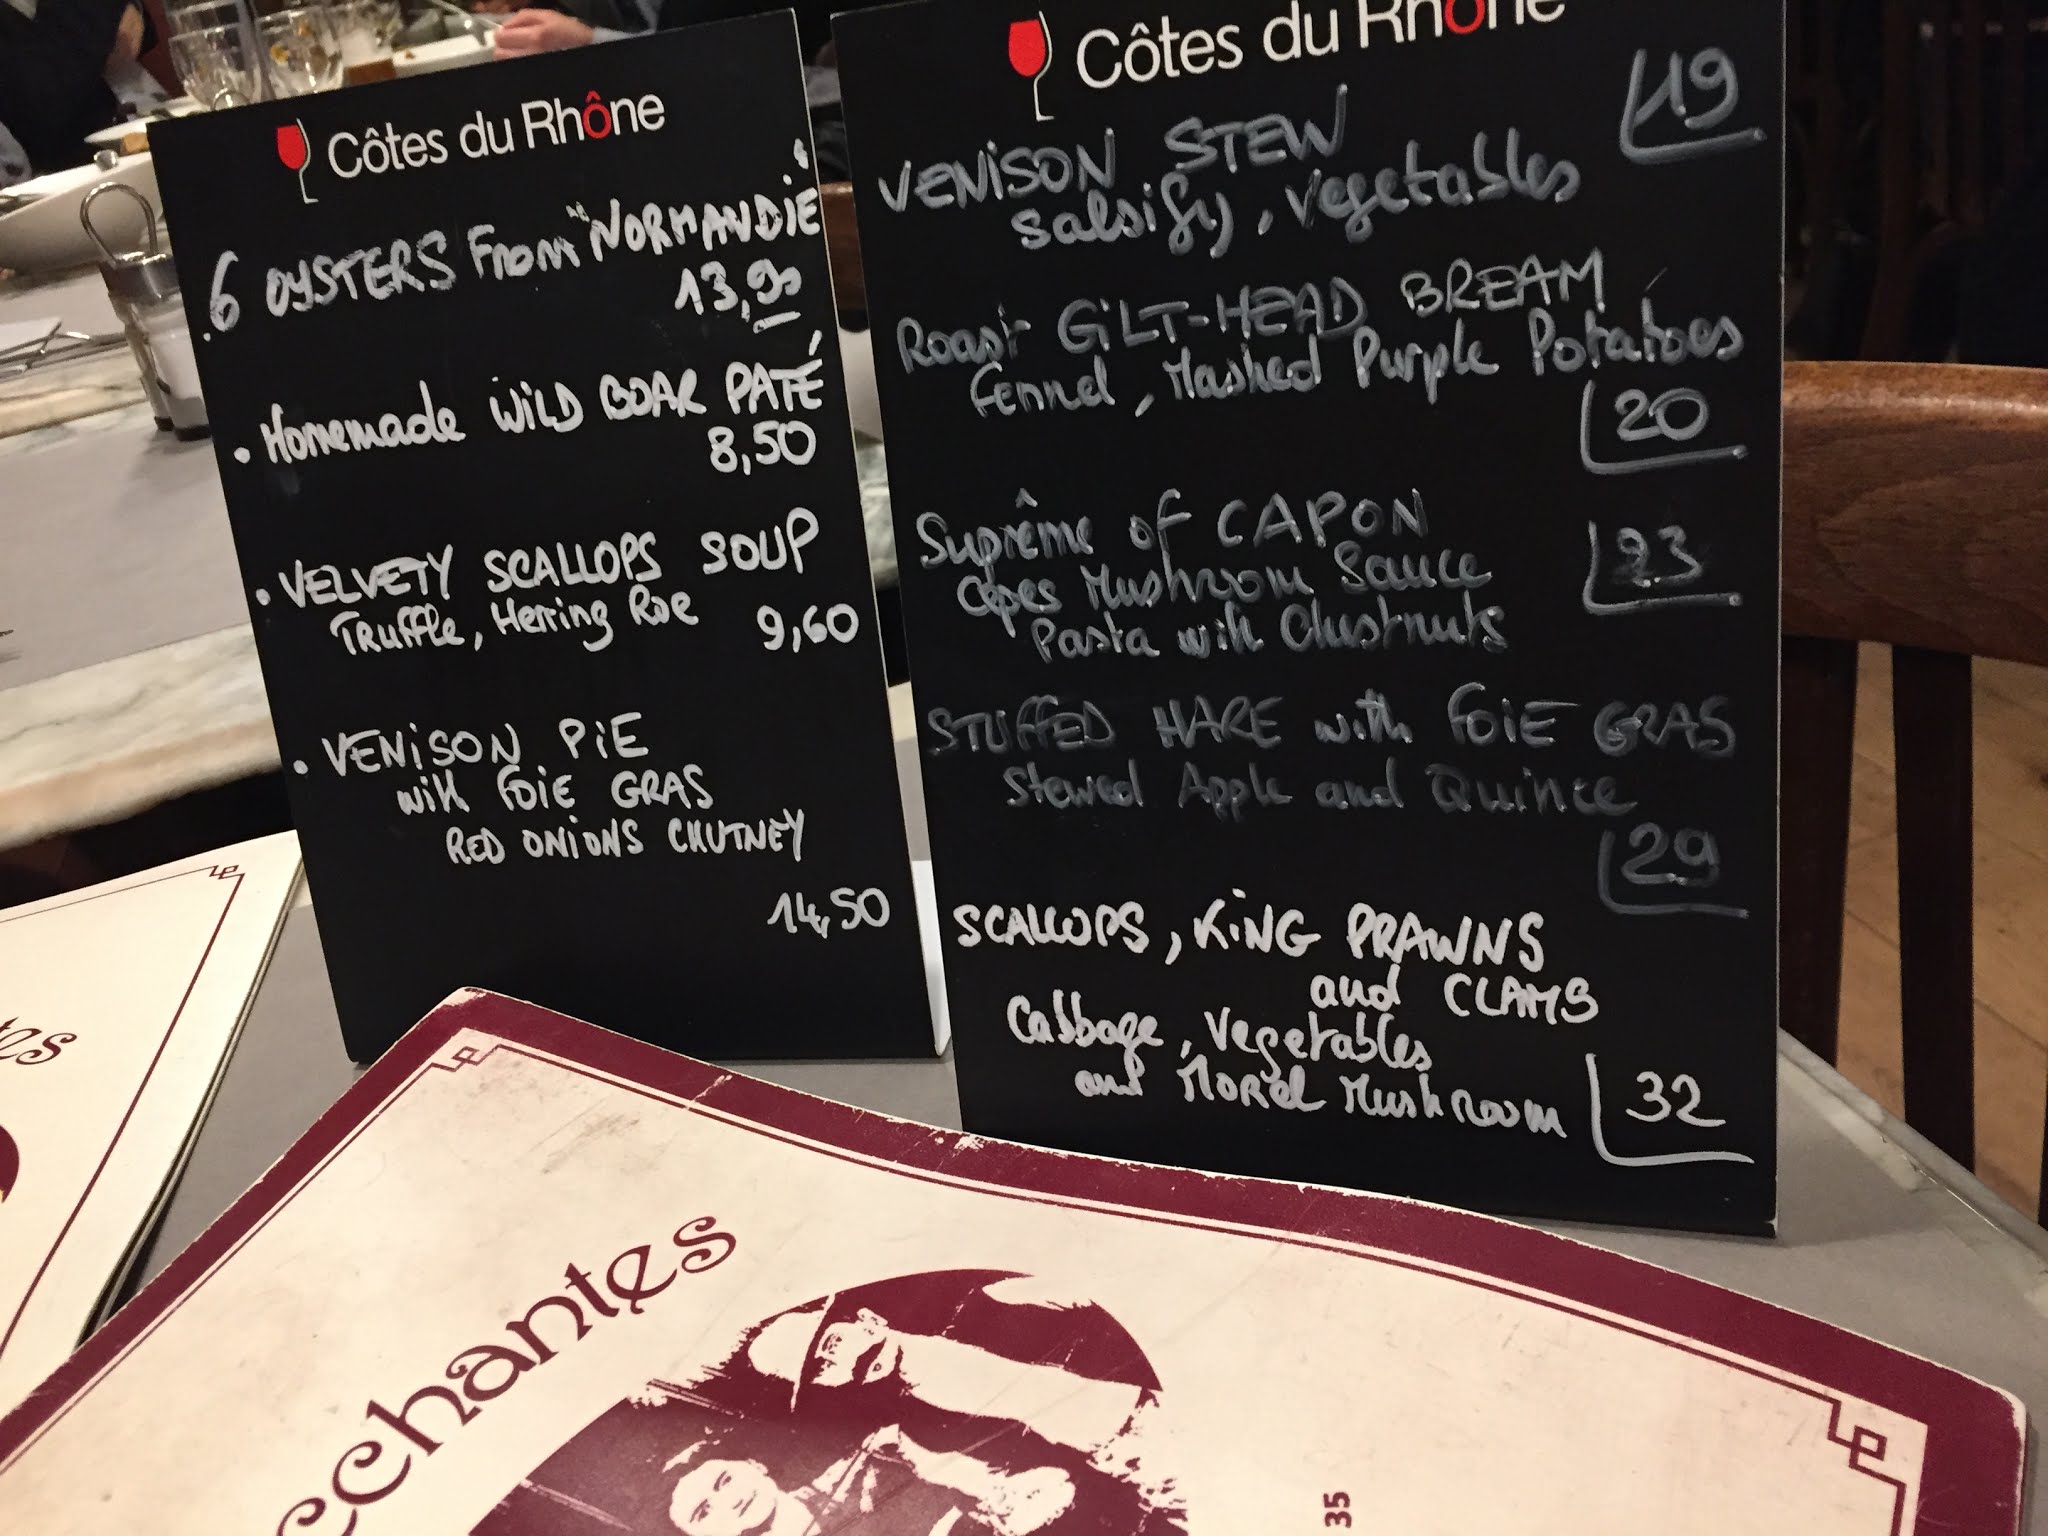 Côtes du Rhône
6 OYSTERS From "NORMANDIE"
13,90
• Homemade WILD BOAR PATÉ
8,50
• VELVETY SCALLOPS SOUP
Truffle, Herring Roe 9,60
• VENISON PIE
with FOIE GRAS
RED ONIONS CHUTNEY
14,50
Côtes du Rhône
19
VENISON STEW
Salsify, Vegetables
Roast GILT-HEAD BREAM
Fennel, Mashed Purple Potatoes
20
Suprême of CAPON
Cèpes Mushroom Sauce
Pasta with Chestnuts
23
STUFFED HARE with FOIE GRAS
Stewed Apple and Quince
29
SCALLOPS, KING PRAWNS
and CLAMS
Cabbage, Vegetables
and Morel Mushroom
32
echantes
35